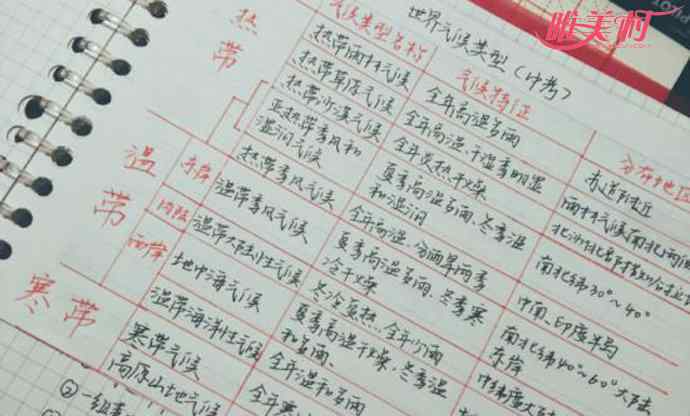 唯美村
世界气候类型（中考）
热带
气候类型名称
气候特征
分布地区
热带雨林气候
全年高温多雨
赤道附近
热带草原气候
全年高温、干湿季明显
雨林气候南北两侧
热带沙漠气候
全年炎热干燥
亚热带季风和
湿润气候
夏季高温多雨、冬季温
和湿润
南北纬30°~40°
热带季风气候
全年高温，分两旱两季
中南、印度半岛
温带
东岸
温带季风气候
夏季高温多雨、冬季寒
冷干燥
南北纬40°~60°大陆
东岸
内陆
温带大陆性气候
冬冷夏热、全年少雨
西岸
地中海气候
夏季高温干燥，冬季温
和多雨
温带海洋性气候
全年温和多雨
寒带
寒带气候
全年寒
高原山地气候
②一组